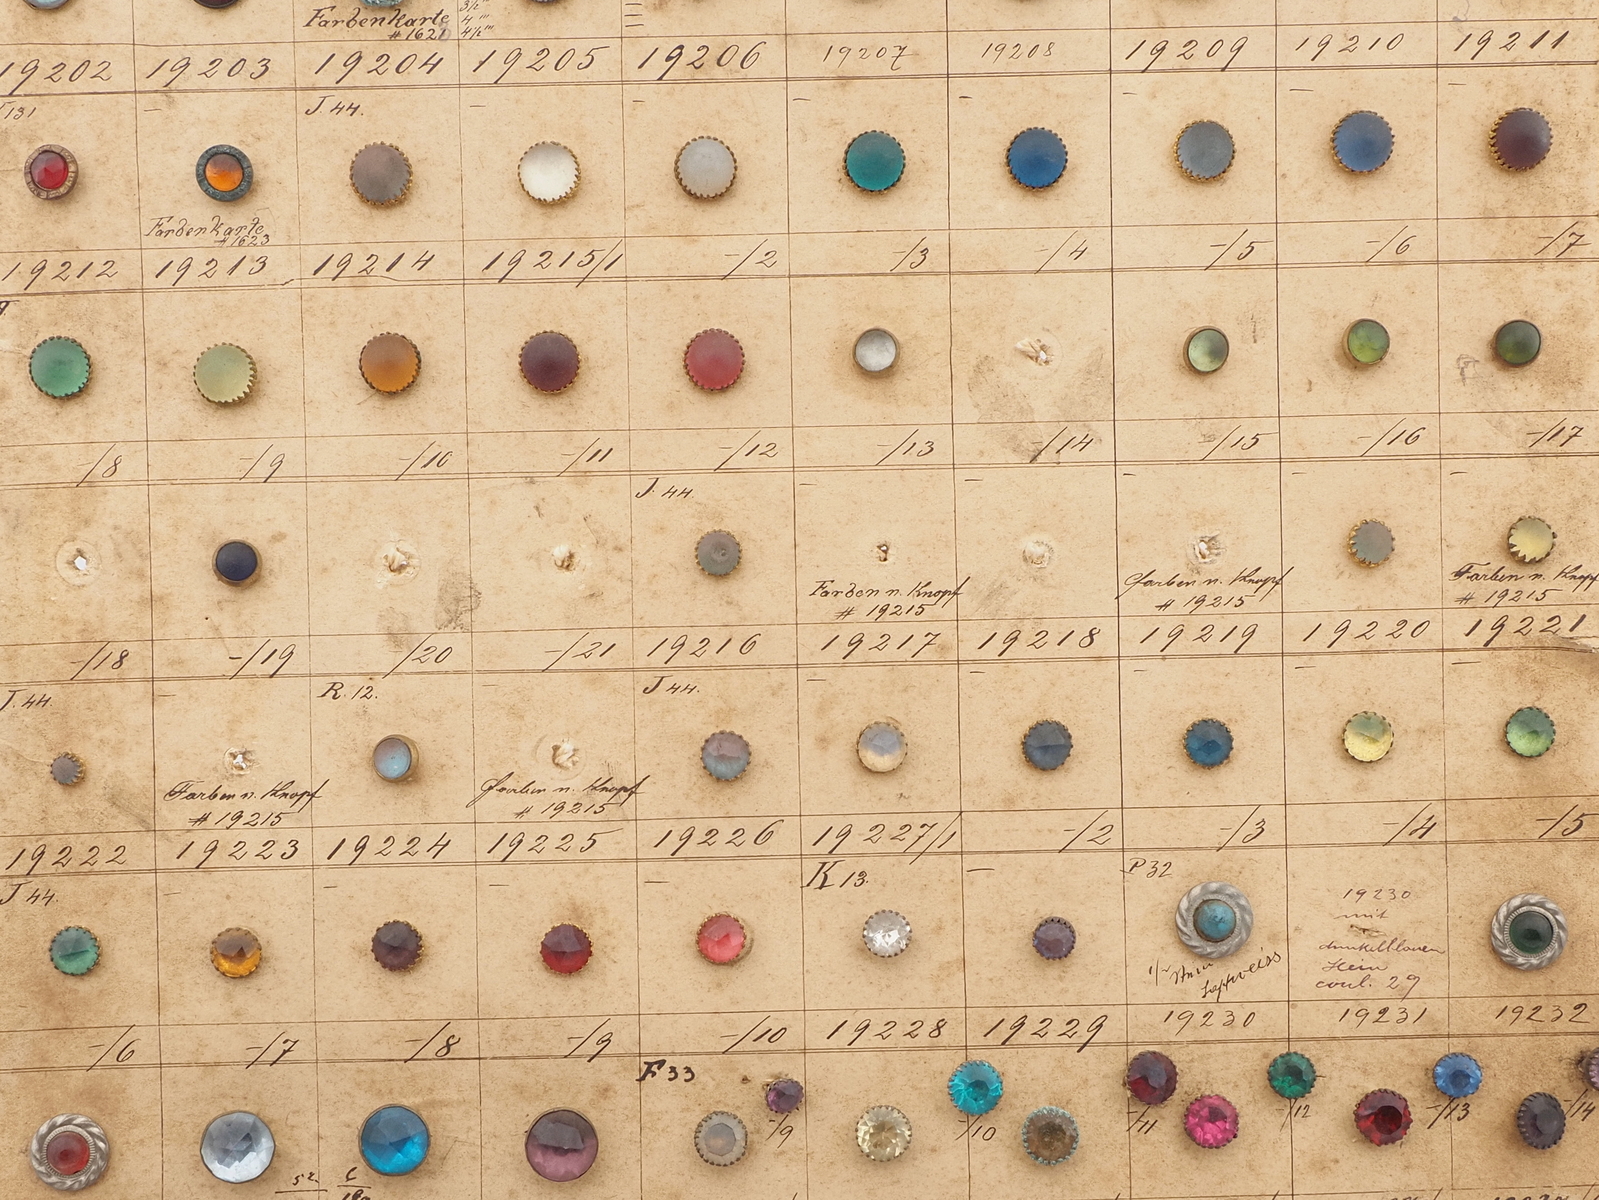 Farbenkarte
# 1621
3½'''
4 '''
4½'''
19202 19203 19204 19205 19206 19207 19208 19209 19210 19211
131 – J. 44. – – – – – – –
Farbenkarte
# 1623
19212 19213 19214 19215/1 -/2 -/3 -/4 -/5 -/6 -/7
-/8 -/9 -/10 -/11 -/12 -/13 -/14 -/15 -/16 -/17
J. 44. – – – – –
Farben n. Knopf
# 19215
Farben n. Knopf
# 19215
Farben n. Knopf
# 19215
-/18 -/19 -/20 -/21 19216 19217 19218 19219 19220 19221
J. 44. – R. 12. – J 44. – – – – –
Farben n. Knopf
# 19215
Farben n. Knopf
# 19215
19222 19223 19224 19225 19226 19227/1 -/2 -/3 -/4 -/5
J 44. – – – – K 13. – P 32
19230
mit
dunkelblauen
Stein
coul. 29
-/6 -/7 -/8 -/9 -/10 19228 19229 19230 19231 19232
F 33
-/9 -/10 -/11 -/12 -/13 -/14